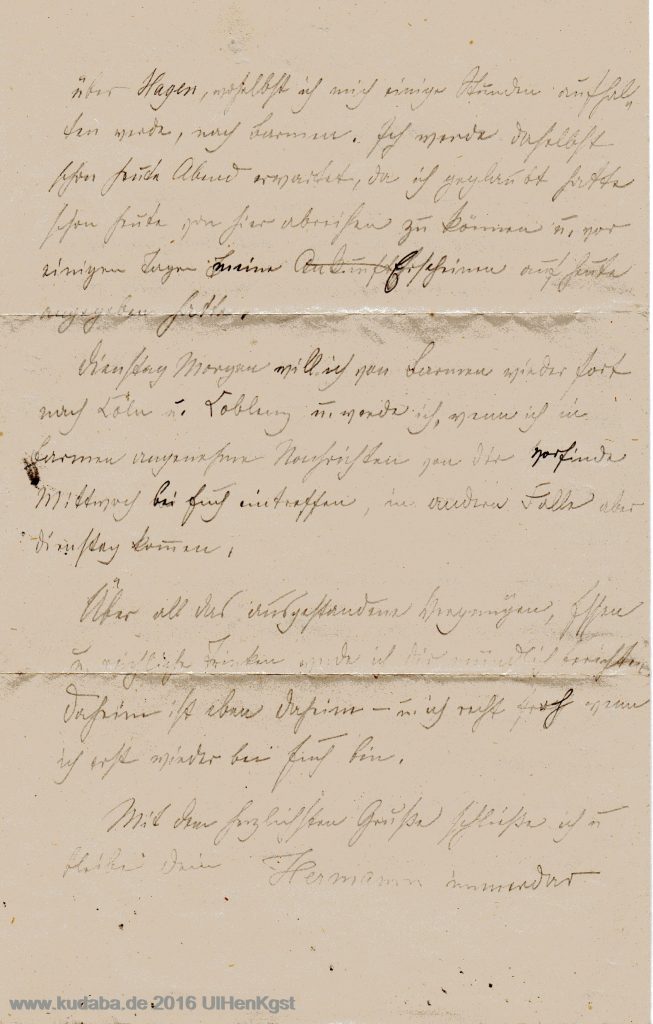 über Hagen, woselbst ich mich einige Stunden aufhal-
ten werde, nach Barmen. Ich werde daselbst
schon heute Abend erwartet, da ich geglaubt hatte
schon heute von hier abreisen zu können u. vor
einigen Tagen meine Ankunft Erscheinen auf heute
angegeben hatte.
Dienstag Morgen will ich von Barmen wieder fort
nach Cöln u. Coblenz u. werde ich, wenn ich in
Barmen angenehme Nachrichten von Dir vorfinde
Mittwoch bei Euch eintreffen, im andern Falle aber
Dienstag kommen.
Über all das ausgestandene Vergnügen, Essen
u. Trinken werde ich Dir mündlich berichten
daheim ist eben daheim – u. ich recht froh wenn
ich erst wieder bei Euch bin.
Mit dem herzlichsten Gruße schließe ich u
bleibe Dein Hermann immerdar
www.kudaba.de 2016 UlHenKgst